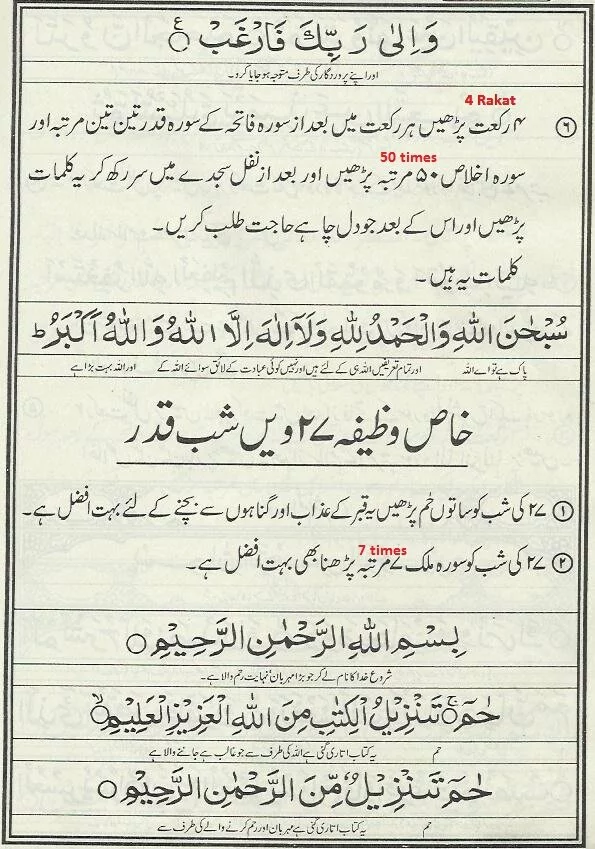 وَاِلٰى رَبِّكَ فَارْغَبْ ۝
اور اپنے پروردگار کی طرف متوجہ ہو جایا کرو۔
4 Rakat
۶ ۴ رکعت پڑھیں ہر رکعت میں بعد از سورہ فاتحہ کے سورہ قدر تین تین مرتبہ اور
50 times
سورہ اخلاص ۵۰ مرتبہ پڑھیں اور بعد از نفل سجدے میں سر رکھ کر یہ کلمات
پڑھیں اور اس کے بعد جو دل چاہے حاجت طلب کریں۔
کلمات یہ ہیں۔
سُبْحٰنَ اللّٰهِ وَالْحَمْدُ لِلّٰهِ وَلَآ اِلٰهَ اِلَّا اللّٰهُ وَاللّٰهُ اَكْبَرُ ط
پاک ہے تو اے اللہ اور تمام تعریفیں اللہ ہی کے لئے ہیں اور نہیں کوئی عبادت کے لائق سوائے اللہ کے اور اللہ بہت بڑا ہے
خاص وظیفہ ۲۷ ویں شب قدر
۱ ۲۷ کی شب کو ساتوں حٰم پڑھیں یہ قبر کے عذاب اور گناہوں سے بچنے کے لئے بہت افضل ہے۔
7 times
۲ ۲۷ کی شب کو سورہ ملک ۷ مرتبہ پڑھنا بھی بہت افضل ہے۔
بِسْمِ اللّٰهِ الرَّحْمٰنِ الرَّحِيْمِ ۝
شروع خدا کا نام لے کر جو بڑا مہربان نہایت رحم والا ہے۔
حٰمٓ ۝ج تَنْزِيْلُ الْكِتٰبِ مِنَ اللّٰهِ الْعَزِيْزِ الْعَلِيْمِ ۝لا
حم یہ کتاب اتاری گئی ہے اللہ کی طرف سے جو غالب ہے جاننے والا ہے
حٰمٓ تَنْزِيْلٌ مِّنَ الرَّحْمٰنِ الرَّحِيْمِ ۝
حم یہ کتاب اتاری گئی ہے مہربان اور رحم کرنے والے کی طرف سے